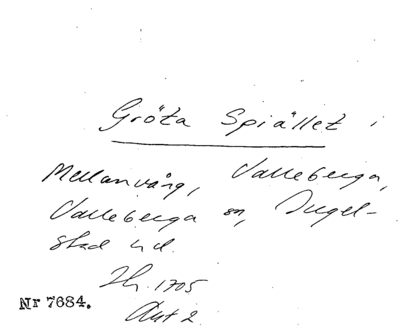 Gröta Spiället i
Mellanvång, Valleberga,
Valleberga sn, Ingel-
stad hd.
Lh. 1705
Akt 2
Nr 7684.